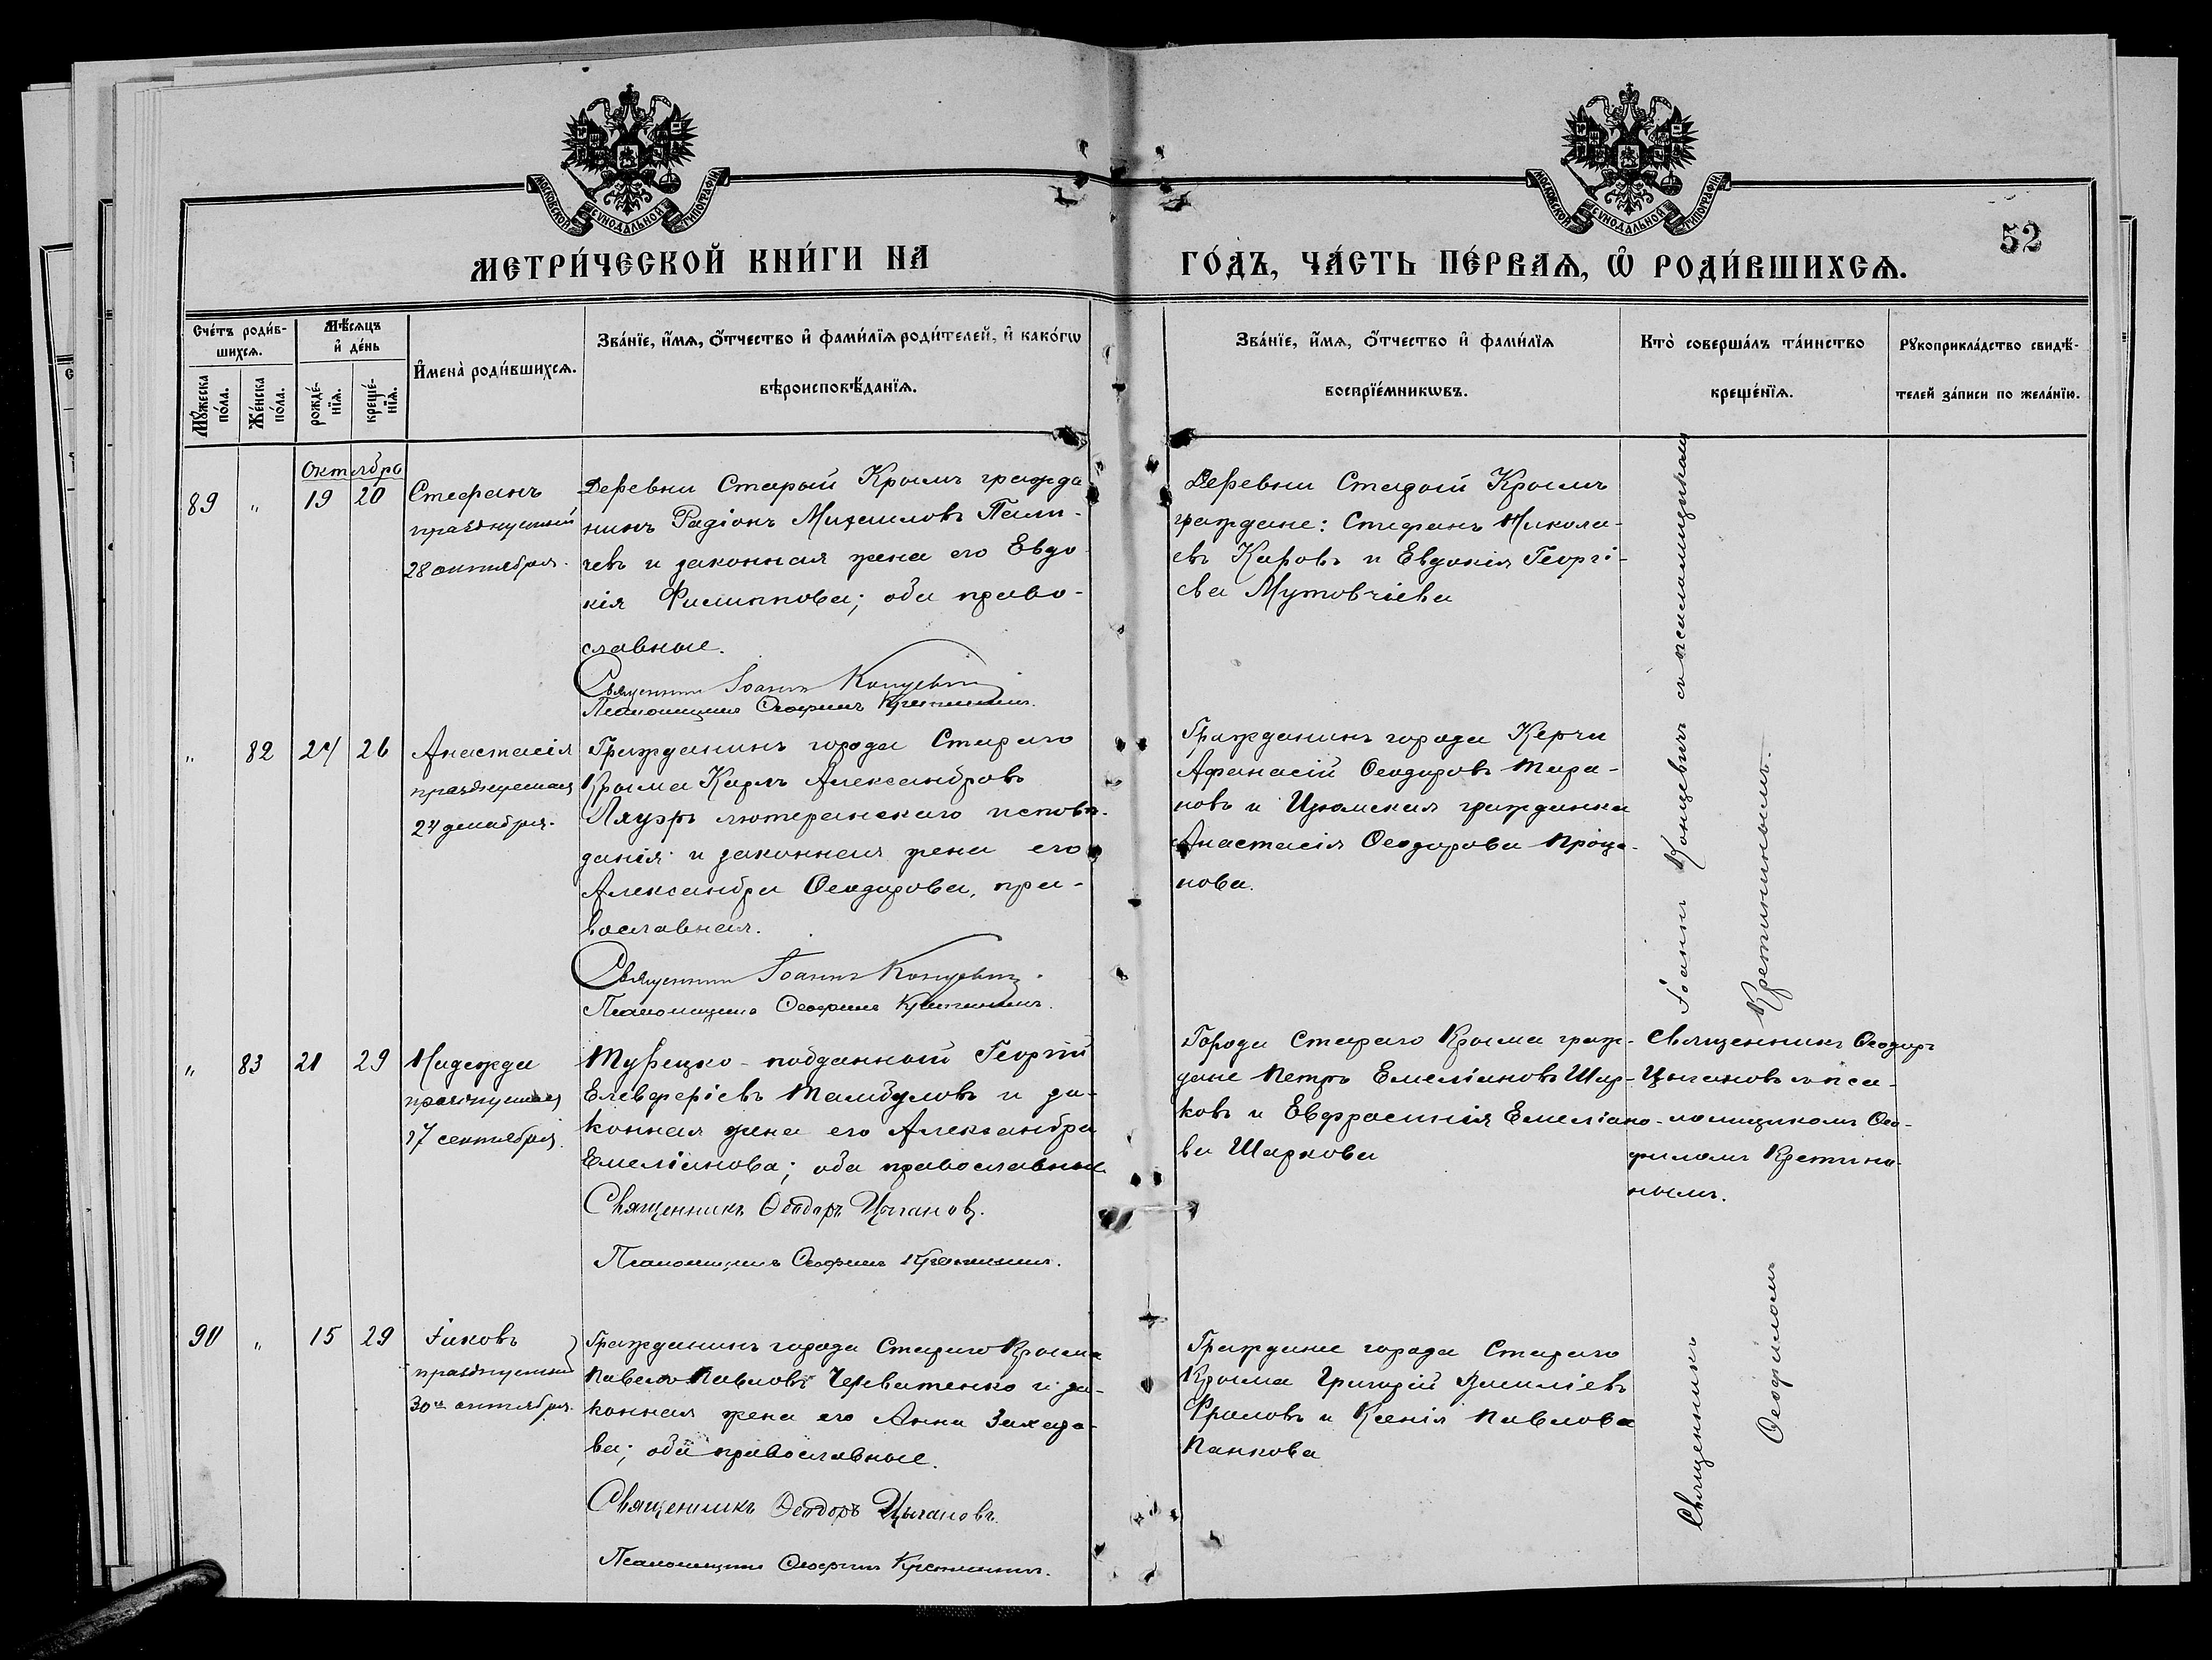 МОСКОВСКОЙ СѴНОДАЛЬНОЙ ТИПОГРАФІИ
МОСКОВСКОЙ СѴНОДАЛЬНОЙ ТИПОГРАФІИ
52
МЕТРИ́ЧЕСКОЙ КНИ́ГИ НА ГО́ДЪ, ЧА́СТЬ ПЕ́РВАѦ, Ѡ РОДИ́ВШИХСѦ.
Сче́тъ роди́в-
шихсѧ.
Мѣ́сѧцъ
и҆ де́нь
Мꙋ́жеска
по́ла.
Же́нска
по́ла.
рожде́-
нїѧ.
креще́-
нїѧ.
И҆мена̀ роди́вшихсѧ.
Зва́нїе, и҆́мѧ, ѻ҆́тчество и҆ фами́лїѧ роди́телей, и҆ како́гѡ
вѣроисповѣ́данїѧ.
Зва́нїе, и҆́мѧ, ѻ҆́тчество и҆ фами́лїѧ
воспрїе́мникѡвъ.
Кто̀ соверша́лъ та́инство
креще́нїѧ.
Рꙋкоприкла́дство свидѣ́-
телей за́писи по жела́нїю.
Октября
89 " 19 20 Стефанъ
празднуемый
28 октября.
Деревни Старый Крымъ гражда
нинъ Радіонъ Михаиловъ
чевъ и законная жена его Евдо
кія Филиппова; оба право-
славные.
Священник Іоаннъ Концевичъ
Псаломщикъ Ѳеофилъ Кретининъ.
Деревни Старый Крымъ
граждане: Стефанъ Никола-
евъ Каровъ и Евдокія Георгі-
ева Мутовчіева
" 82 24 26 Анастасія
празднуемая
24 декабря.
Гражданинъ города Стараго
Крыма Карлъ Александровъ
лютеранскаго испов
данія и законная жена его
Александра Ѳеодорова, пра-
вославная.
Священник Іоаннъ Концевичъ.
Псаломщикъ Ѳеофилъ Кретининъ.
Гражданинъ города Керчи
Афанасій Ѳеодоровъ Тара-
новъ и Изюмская гражданка
Анастасія Ѳеодорова Проца-
нова.
Іоаннъ Концевичъ съ псаломщикомъ
Кретининымъ.
" 83 21 29 Надежда
празднуемая
17 сентября.
Турецко-подданный Георгій
Елевферіевъ Тамбуловъ и за-
конная жена его Александра
Емеліанова; оба православные
Священникъ Ѳеодоръ Цыгановъ.
Псаломщикъ Ѳеофилъ Кретининъ.
Города Стараго Крыма граж-
дане Петръ Емеліановъ Шар-
ковъ и Евфросинія Емеліано-
ва Шаркова
Священникъ Ѳеодоръ
Цыгановъ съ пса-
ломщикомъ Ѳео-
филомъ Кретини-
нымъ.
90 " 15 29 Іаковъ
празднуемый
30го октября.
Гражданинъ города Стараго Крыма
Павелъ Павловъ Черватенко и за-
конная жена его Анна Захаро-
ва; оба православные.
Священникъ Ѳеодоръ Цыгановъ.
Псаломщикъ Ѳеофилъ Кретининъ.
Граждане города Стараго
Крыма Григорій Василіевъ
Фроловъ и Ксенія Павлова
Панкова
Священникъ
Ѳеофиломъ